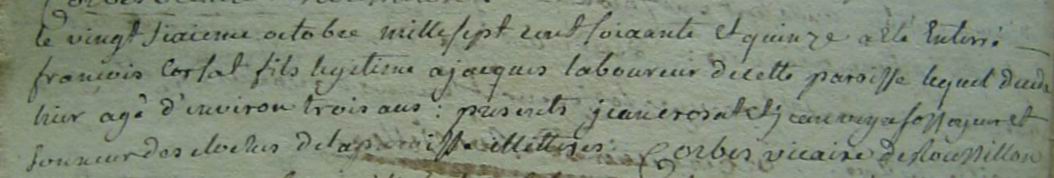 le vingt sixieme octobre mille sept cent soixante et quinze a eté Enterré
francois Corsat fils legitime a jacques laboureur de cette paroisse lequel
hier agé d'environ trois ans : presents jean crosat et jean fossoyeur et
sonneur des cloches de la paroisse illettres. Corbes vicaire de Roussillon